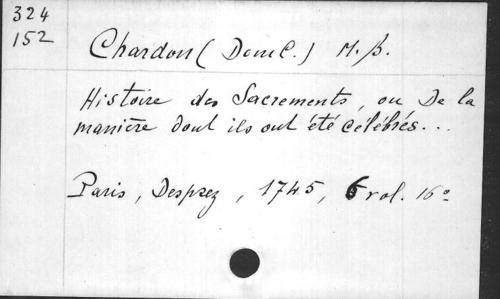 324
152
Chardon (Dom C.) M. b.
Histoire des Sacrements, ou De la
manière dont ils ont été célébrés...
Paris, Desprez, 1745, 6 vol. 16°